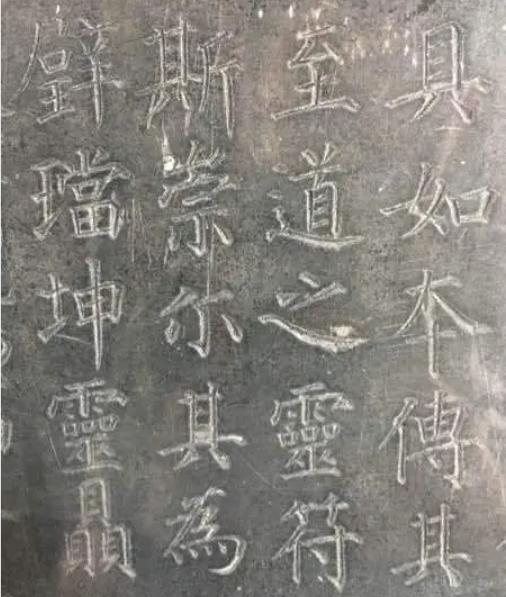 具如本傳其
至道之靈符
斯崇尓其為
璫坤靈贔